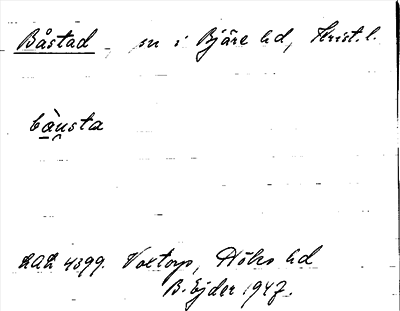 Båstad sn i Bjäre hd, Krist. l.
bàu̯sta
LAL 4399. Voxtorp, Höks hd
B. Ejder 1947.